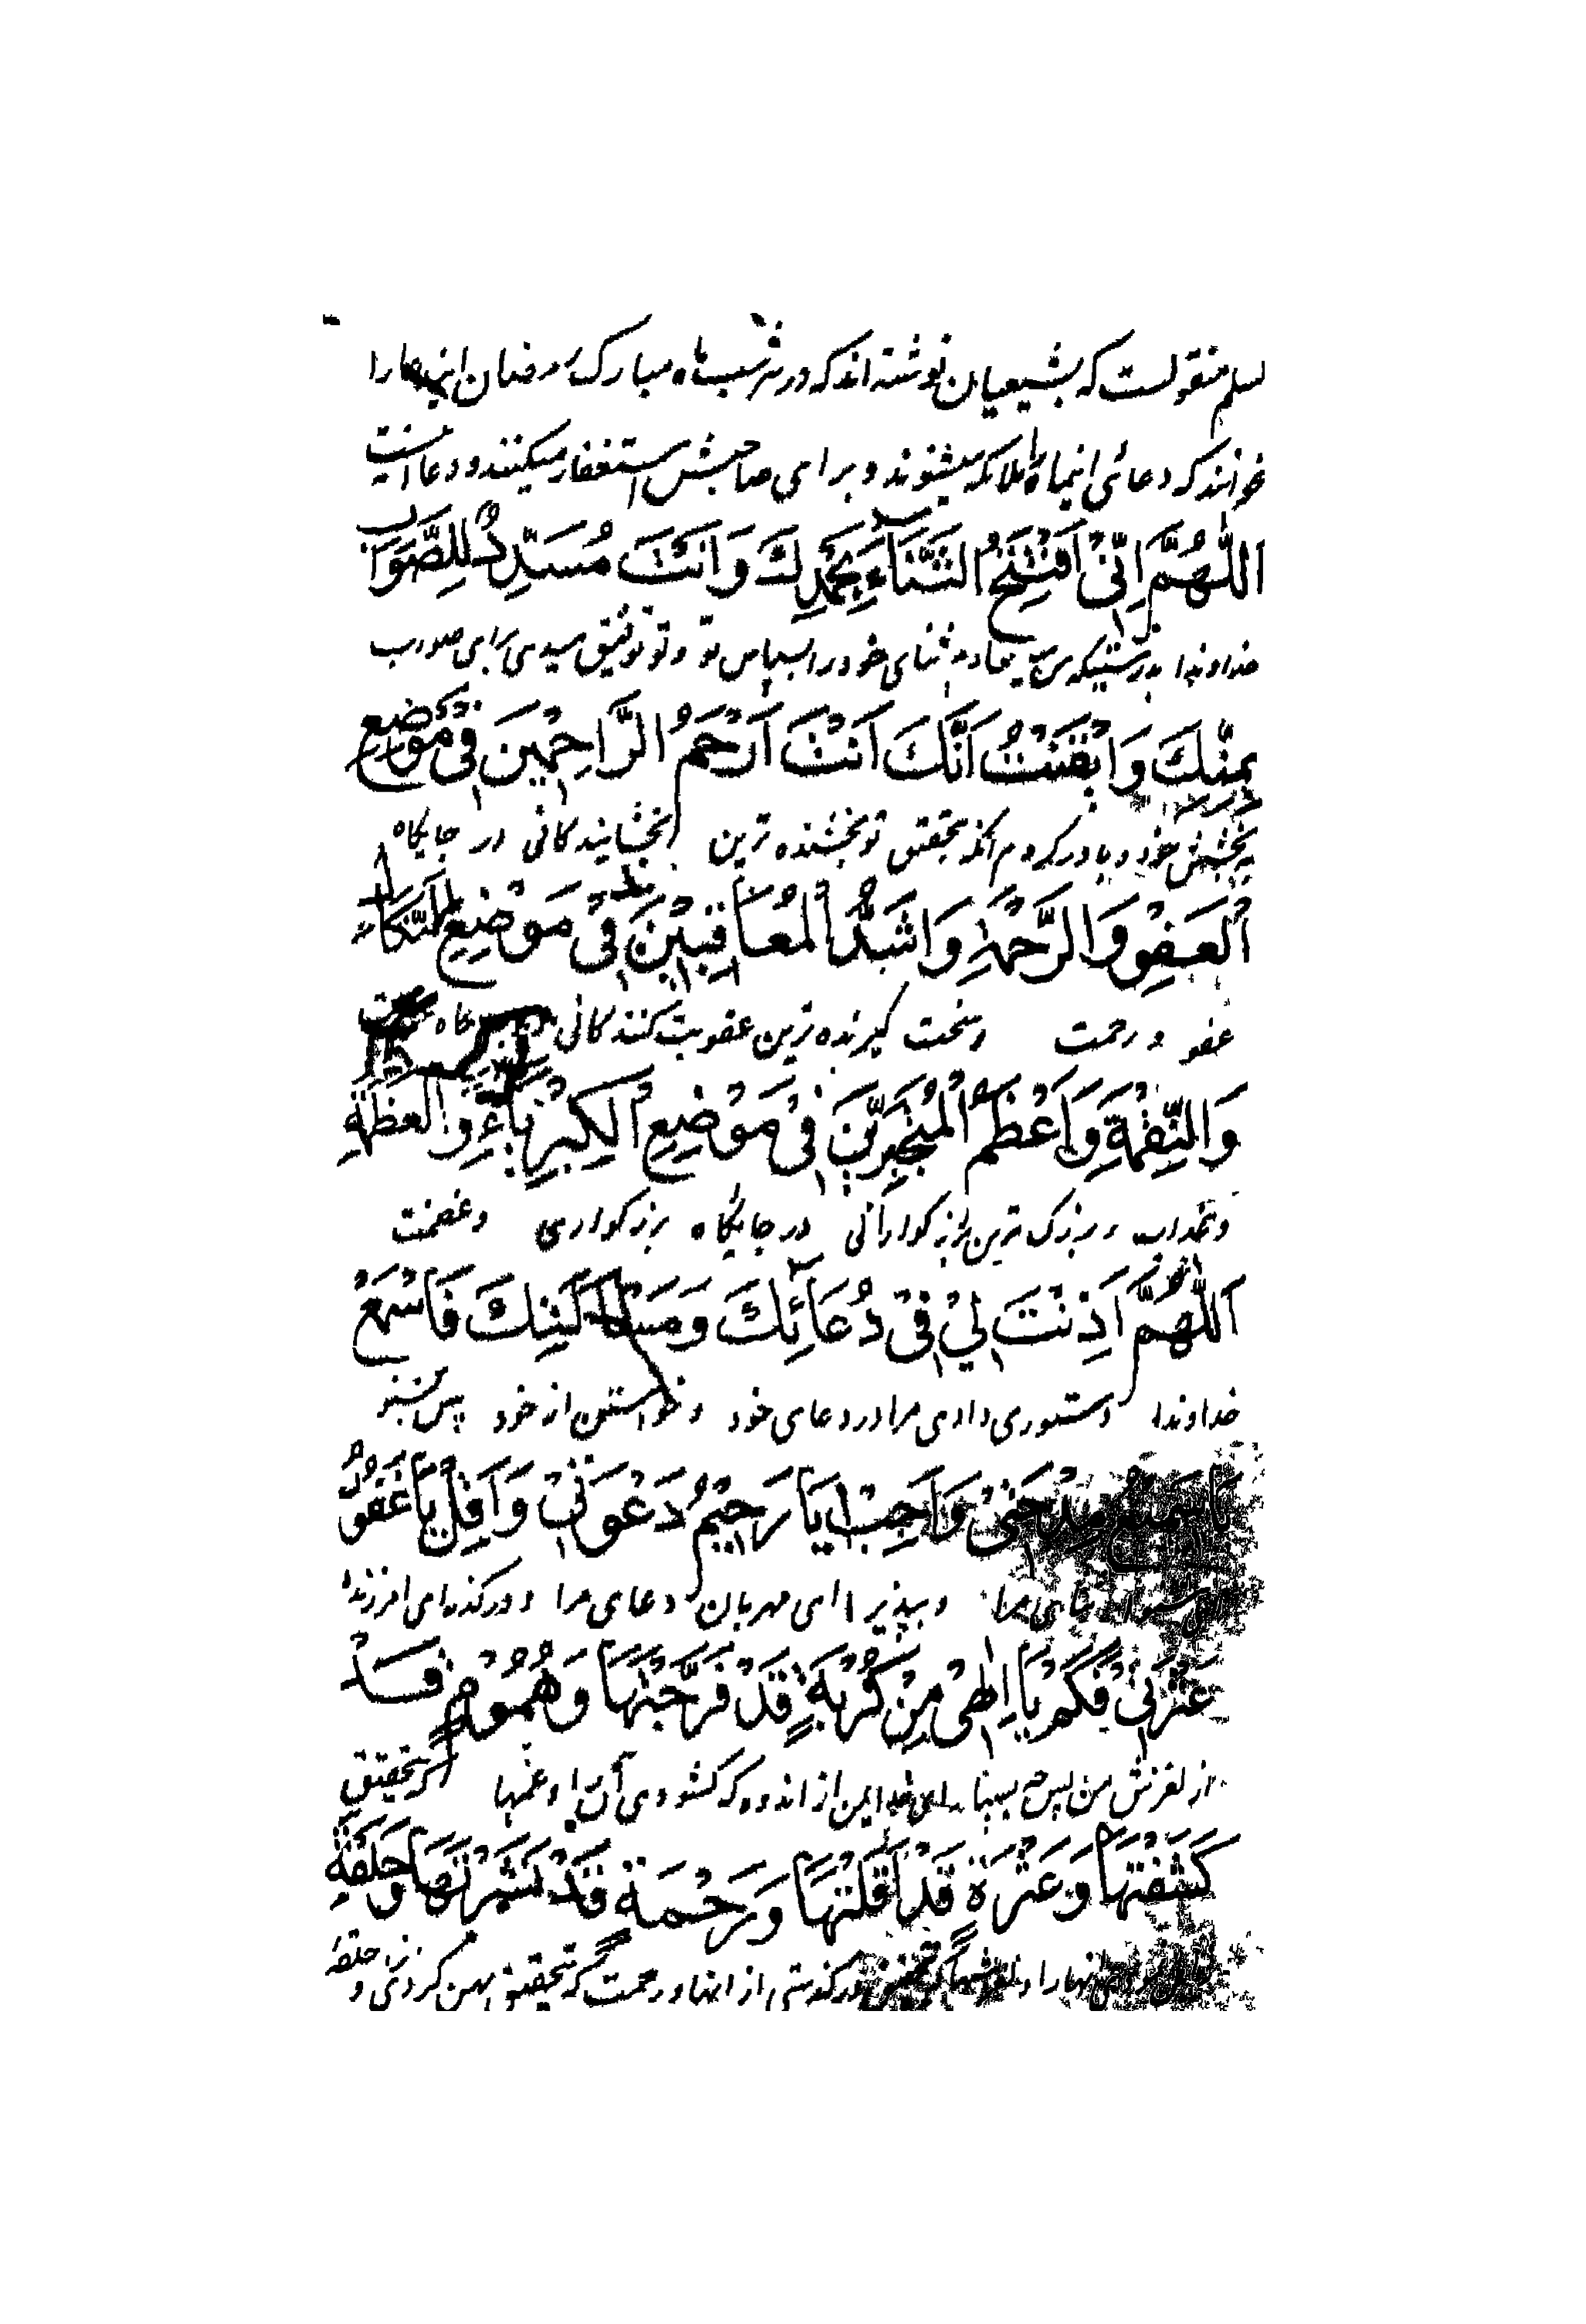 سلم منقولست که بشیعیان نوشته اند که در هر شب ماه مبارک رمضان این دعا را
خوانند که دعای اینماه را ملائکه میشنوند و برای صاحبش استغفار میکنند و دعا اینست
اَللّٰهُمَّ اِنّی اَفْتَتِحُ الثَّنَآءَ بِحَمْدِكَ وَاَنْتَ مُسَدِّدٌ لِلصَّوَابِ
خداوندا بدرستیکه من ثنای خود را بسپاس تو و تو توفیق میدهی برای صواب
بِمَنِّكَ وَاَیْقَنْتُ اَنَّكَ اَنْتَ اَرْحَمُ الرَّاحِمینَ فی مَوْضِعِ
ببخشش خود و باور کردم آنکه بتحقیق تو بخشنده ترین بخشایندکانی در جایکاه
الْعَفْوِ وَالرَّحْمَةِ وَاَشَدُّ الْمُعَاقِبینَ فی مَوْضِعِ النَّكَالِ
عفو و رحمت و سخت کیرنده ترین عقوبت کنندکانی
وَالنَّقِمَةِ وَاَعْظَمُ الْمُتَجَبِّرینَ فی مَوْضِعِ الْكِبْرِیَآءِ وَالْعَظَمَةِ
و بزرک ترین بزرکوارانی در جایکاه بزرکواری و عظمت
اَللّٰهُمَّ اَذِنْتَ لی فی دُعَآئِكَ وَمَسْئَلَتِكَ فَاسْمَعْ
خداوندا دستوری دادی مرا در دعای خود و خواستن از خود پس بشنو
یَا سَمیعُ مِدْحَتی وَاَجِبْ یَا رَحیمُ دَعْوَتی وَاَقِلْ یَا غَفُورُ
ثنای مرا و بپذیر ای مهربان دعای مرا و درکذر ای امرزنده
عَثْرَتی فَكَمْ یَا اِلٰهی مِنْ كُرْبَةٍ قَدْ فَرَّجْتَهَا وَهُمُومٍ قَدْ
از لغزش من پس چه بسیار ای خدای من از اندوه که کشودی آن را و غمها که بتحقیق
كَشَفْتَهَا وَعَثْرَةٍ قَدْ اَقَلْتَهَا وَرَحْمَةٍ قَدْ نَشَرْتَهَا وَحَلْقَةِ
درکذشتی از انها و رحمت که بتحقیق پهن کردی و حلقه